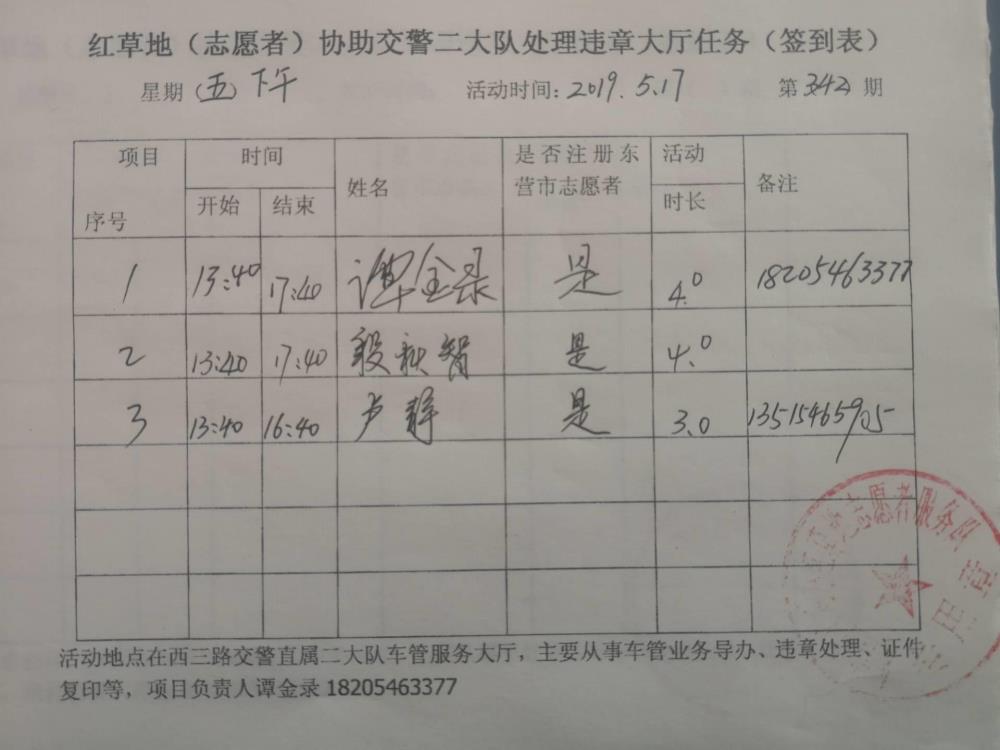 红草地（志愿者）协助交警二大队处理违章大厅任务（签到表）
星期（五）下午 活动时间：2019.5.17 第342期
项目 时间 姓名 是否注册东营市志愿者 活动时长 备注
序号 开始 结束
1 13:40 17:40 谭金录 是 4.0 18205463377
2 13:40 17:40 段秋智 是 4.0
3 13:40 16:40 卢静 是 3.0 13515465905
志愿者服务队
活动地点在西三路交警直属二大队车管服务大厅，主要从事车管业务导办、违章处理、证件
复印等，项目负责人谭金录 18205463377